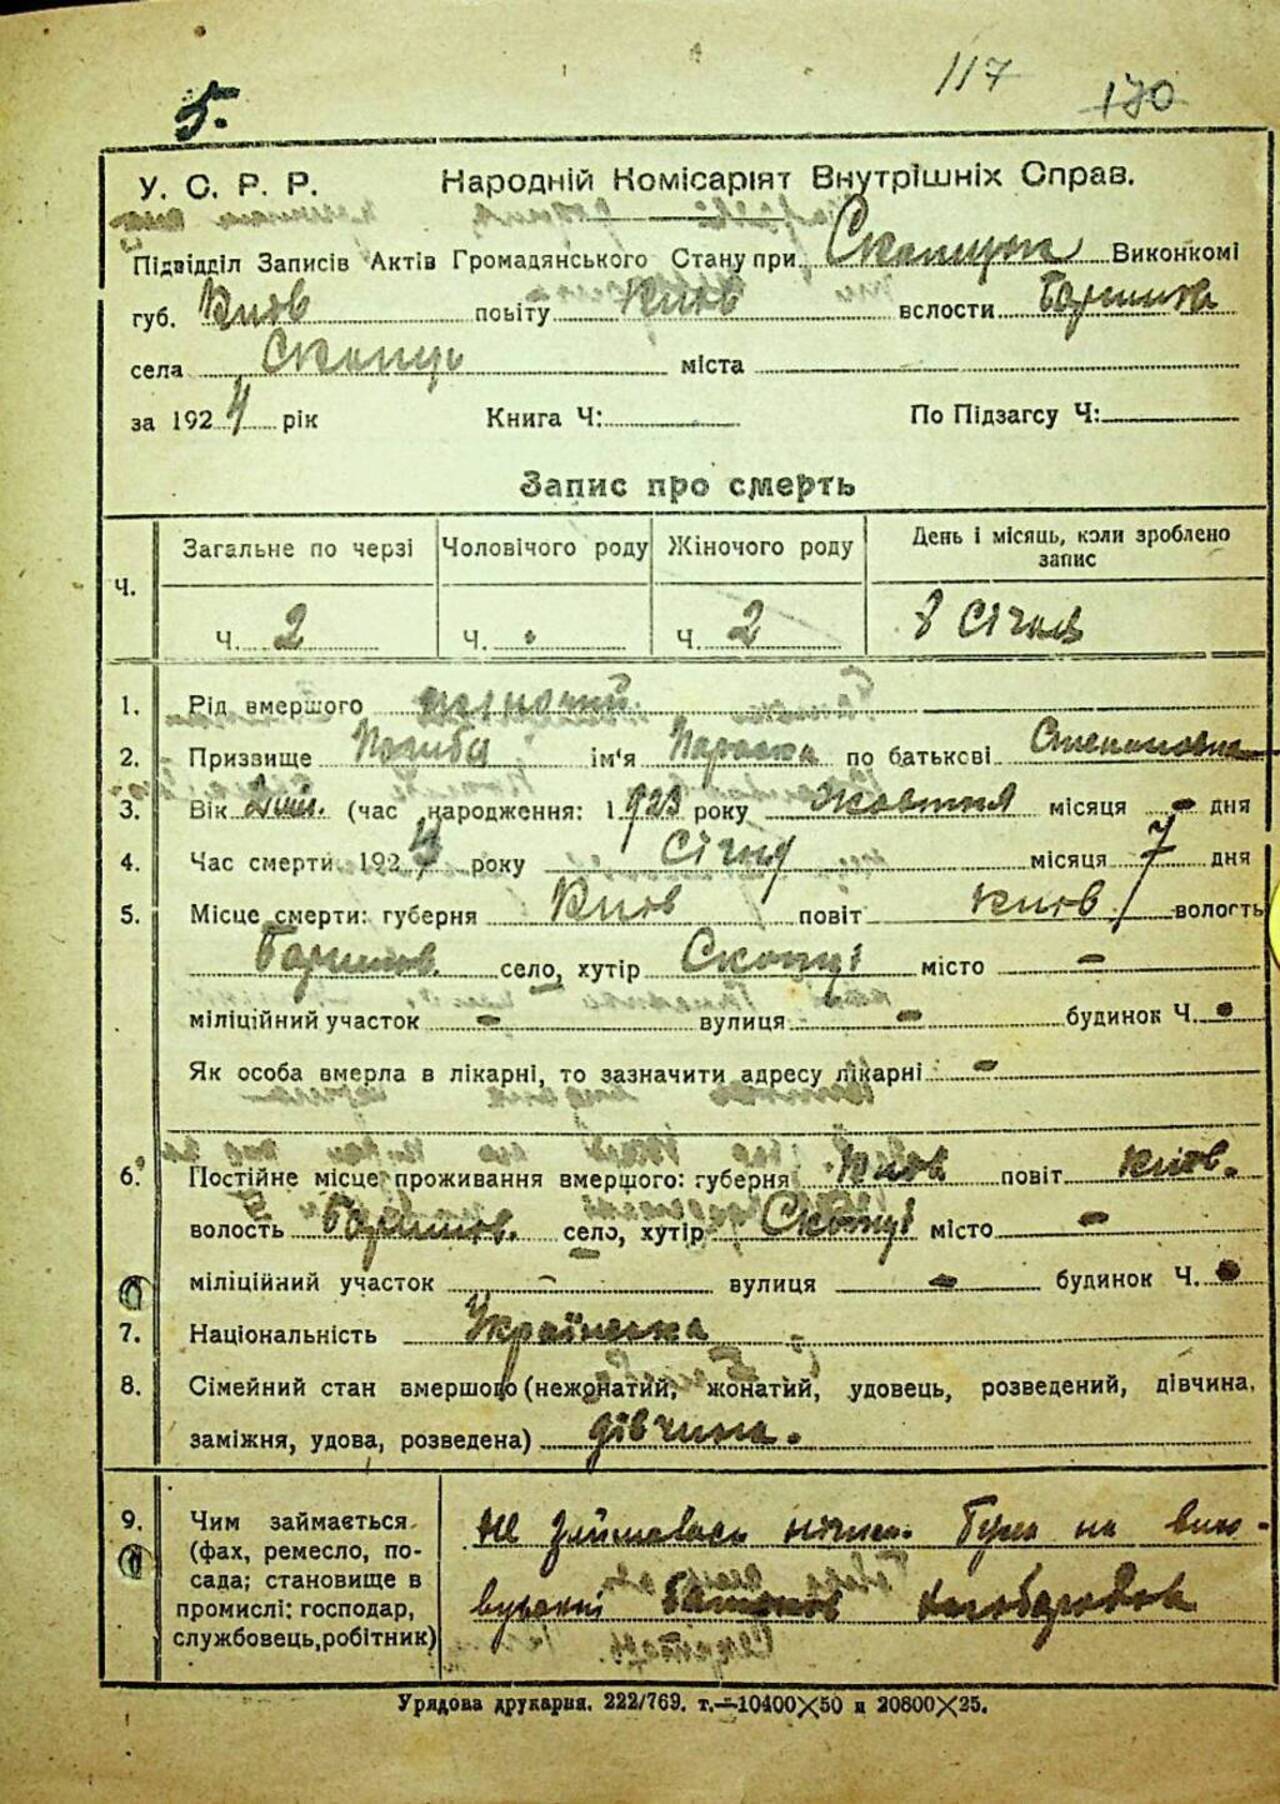 117 130
5.
У. С. Р. Р. Народній Комісаріят Внутрішніх Справ.
Підвідділ Записів Актів Громадянського Стану при Виконкомі
губ. Київ повіту Київ вслости Баришів
села Скопці міста
за 1924 рік Книга Ч: По Підзагсу Ч:
Запис про смерть
Ч. Загальне по черзі Чоловічого роду Жіночого роду День і місяць, коли зроблено запис
Ч. 2 Ч. Ч. 2 8 Січня
1. Рід вмершого жіночий
2. Призвище ім'я Параска по батькові Степановна
3. Вік (час народження: 1923 року Жовтня місяця - дня
4. Час смерти 1924 року Січня місяця 7 дня
5. Місце смерти: губерня Київ повіт Київ волость
Баришів. село, хутір Скопці місто -
міліційний участок - вулиця - будинок Ч. -
Як особа вмерла в лікарні, то зазначити адресу лікарні -
6. Постійне місце проживання вмершого: губерня Київ повіт Київ.
волость Баришів. село, хутір Скопці місто -
міліційний участок - вулиця - будинок Ч. -
7. Національність Українська
8. Сімейний стан вмершого (нежонатий, жонатий, удовець, розведений, дівчина,
заміжня, удова, розведена) дівчина.
9. Чим займається (фах, ремесло, посада; становище в промислі: господар, службовець, робітник)
не займалась нічим. Була на вихо-
вуванні батьків хлоборобов
Урядова друкарня. 222/769. т.—10400×50 и 20800×25.